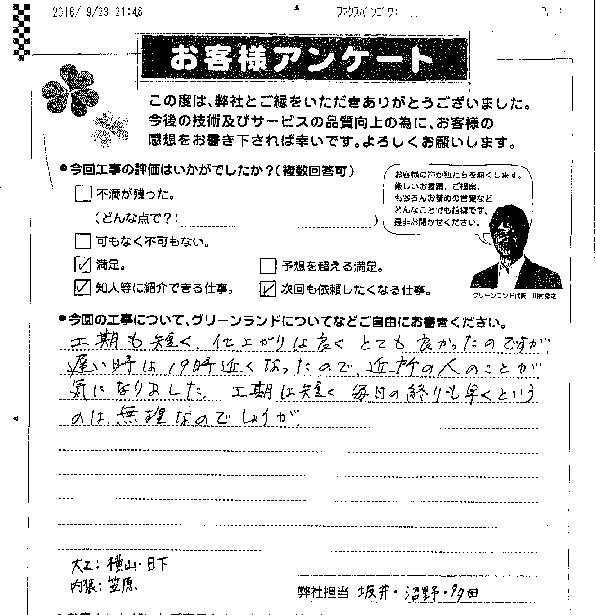 2016/ 9/23 21:46
お客様アンケート
この度は、弊社とご縁をいただきありがとうございました。
今後の技術及びサービスの品質向上の為に、お客様の
感想をお書き下されば幸いです。よろしくお願いします。
●今回工事の評価はいかがでしたか？（複数回答可）
不満が残った。
（どんな点で？：　　　　）
可もなく不可もない。
満足。
予想を超える満足。
知人等に紹介できる仕事。
次回も依頼したくなる仕事。
お客様の声が私たちを強くします。
厳しいお言葉、ご指摘、
もちろんお褒めの言葉など
どんなことでも結構です。
是非お聞かせください。
グリーンランド代表
●今回の工事について、グリーンランドについてなどご自由にお書きください。
工期も短く、仕上がりは良く とても良かったのですが
遅い時は 19時近くなったので、近所の人のことが
気になりました。 工期は短く 毎日の終りも早くという
のは、無理なのでしょうが
大工：横山・日下
内張：笠原
弊社担当 坂井・沼野・多田